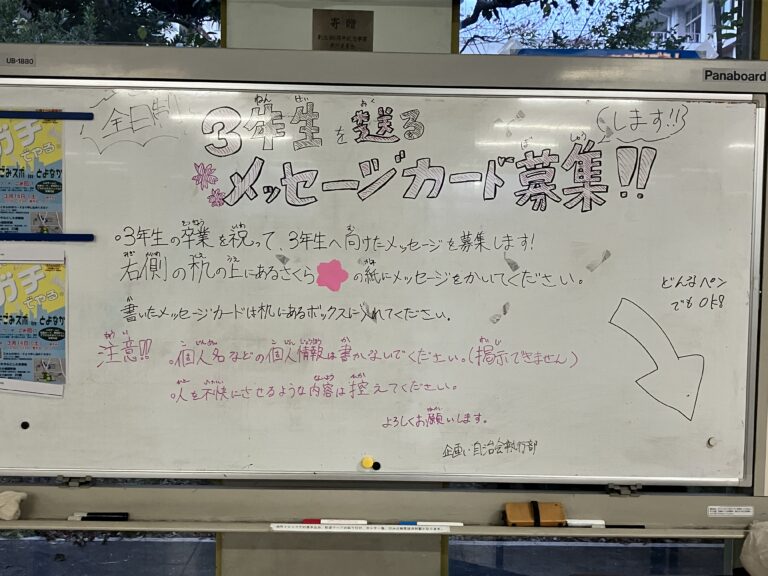 寄贈
UB-1880
Panaboard
全日制
3年生を送る
します!!
メッセージカード募集!!
。3年生の卒業を祝って、3年生へ向けたメッセージを募集します!
右側の机の上にあるさくらの紙にメッセージをかいてください。
書いたメッセージカードは机にあるボックスに入れてください。
どんなペン
でもOK!
注意!!
。個人名などの個人情報は書かないでください。(掲示できません)
。人を不快にさせるような内容は控えてください。
よろしくお願いします。
企画:自治会執行部
ガチ
でやる
ガチ
でやる